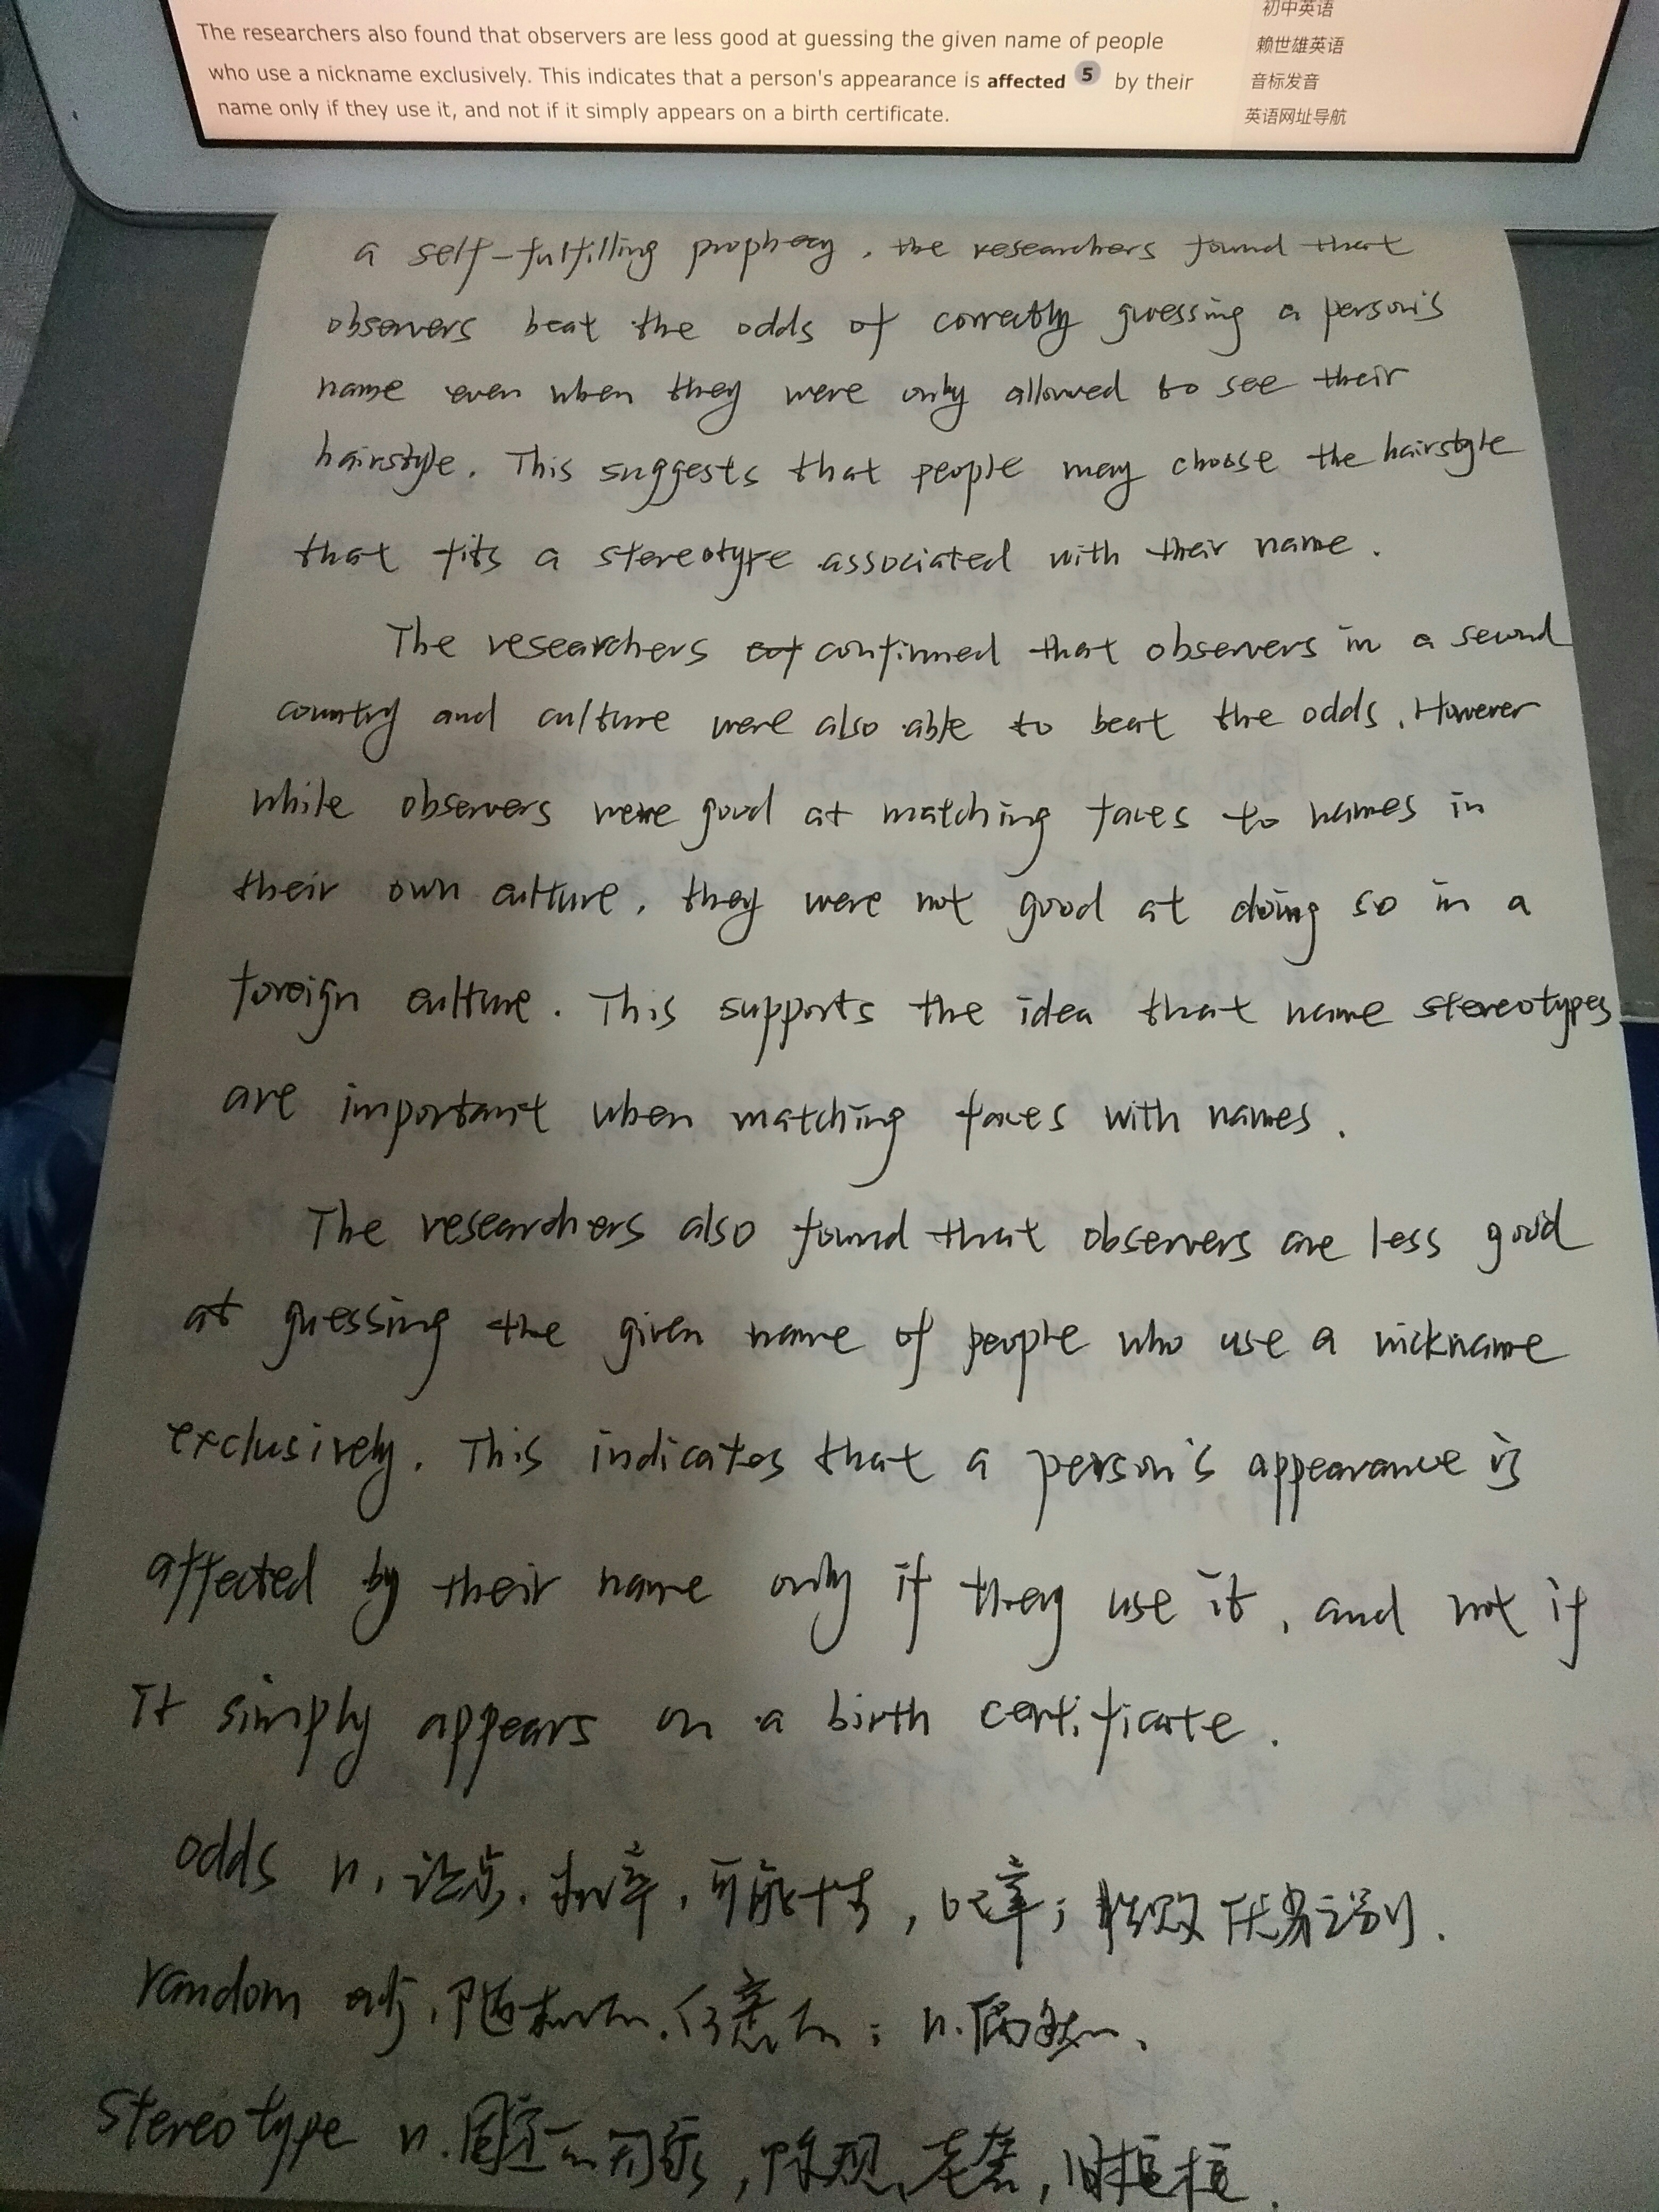 The researchers also found that observers are less good at guessing the given name of people
who use a nickname exclusively. This indicates that a person's appearance is affected 5 by their
name only if they use it, and not if it simply appears on a birth certificate.
初中英语
赖世雄英语
音标发音
英语网址导航
a self-fulfilling prophecy, the researchers found that
observers beat the odds of correctly guessing a person's
name even when they were only allowed to see their
hairstyle. This suggests that people may choose the hairstyle
that fits a stereotype associated with their name.
The researchers confirmed that observers in a second
country and culture were also able to beat the odds. However
while observers were good at matching faces to names in
their own culture, they were not good at doing so in a
foreign culture. This supports the idea that name stereotypes
are important when matching faces with names.
The researchers also found that observers are less good
at guessing the given name of people who use a nickname
exclusively. This indicates that a person's appearance is
affected by their name only if they use it, and not if
It simply appears on a birth certificate.
odds n. 让步, 机率, 可能性, 比率; 胜败优劣之别.
random adj. 随机的, 任意的; n. 偶然.
stereotype n. 固定的形式, 陈规, 老套, 旧框框.